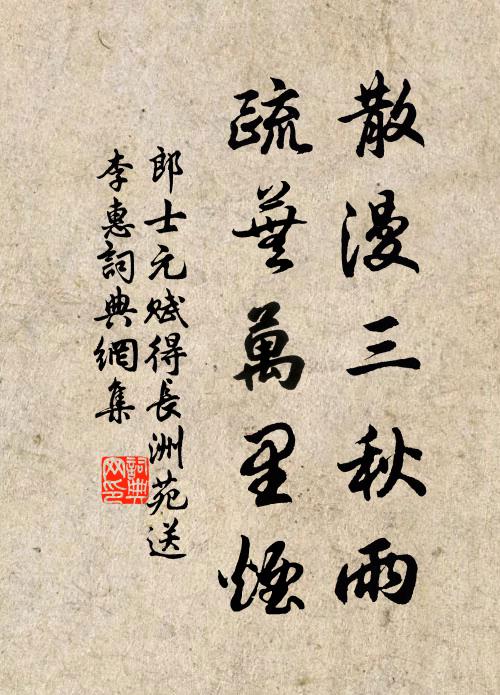 散漫三秋雨
疏蕪萬里煙
郎士元賦得長洲苑送
李惠詞典網集
詞典
网印